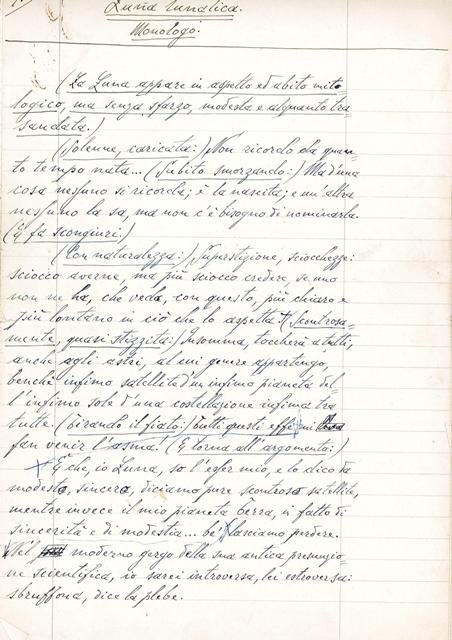 Luna lunatica.
Monologo.
(La Luna appare in aspetto ed abito mito=
logico, ma senza sfarzo, modesta e alquanto tra=
sandata.)
(Solenne, caricata:) Non ricordo da quan=
to tempo nata... (Subito smorzando:) Ma d'una
cosa nessuno si ricorda; è la nascita; e un'altra
nessuno la sa, ma non c'è bisogno di nominarla.
(E fa scongiuri.)
(Con naturalezza:) Superstizione, sciocchezze:
sciocco averne, ma più sciocco credere, se uno
non ne ha, che veda, con questo, più chiaro e
più lontano in ciò che lo aspetta. (Scontrosa=
mente, quasi stizzita:) Insomma, toccherà a tutti,
anche agli astri, al cui genere appartengo,
benché infimo satellite d'un infimo pianeta del=
l'infimo sole d'una costellazione infima tra
tutte. (Tirando il fiato:) Tutti questi effe mi
fan venir l'asma! (E torna all'argomento:)
E che, io Luna, so l'esser mio, e lo dico da
modesto, sincero, diciamo pure scontroso satellite,
mentre invece il mio pianeta Terra, in fatto di
sincerità e di modestia... be' lasciamo perdere.
Nel moderno gergo della sua antica presunzio=
ne scientifica, io sarei introversa, lei estroversa:
sbruffona, dice la plebe.